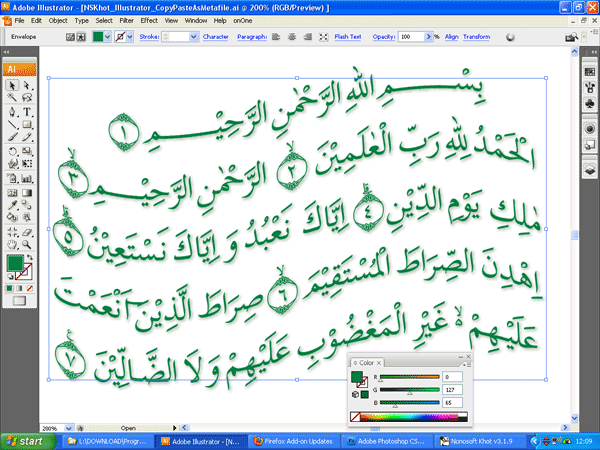 Adobe Illustrator - [NSKhot_Illustrator_CopyPasteAsMetafile.ai @ 200% (RGB/Preview) ]
File Edit Object Type Select Filter Effect View Window Help onOne
Envelope Stroke: Character Paragraph: Flash Text Opacity: 100 % Align Transform
Ai
بِسْمِ اللهِ الرَّحْمٰنِ الرَّحِيْمِ ١
اَلْحَمْدُ لِلّٰهِ رَبِّ الْعٰلَمِيْنَ ٢ الرَّحْمٰنِ الرَّحِيْمِ ٣
مٰلِكِ يَوْمِ الدِّيْنِ ٤ اِيَّاكَ نَعْبُدُ وَ اِيَّاكَ نَسْتَعِيْنُ ٥
اِهْدِنَ الصِّرَاطَ الْمُسْتَقِيْمَ ٦ صِرَاطَ الَّذِيْنَ اَنْعَمْتَ
عَلَيْهِمْ ۙ غَيْرِ الْمَغْضُوْبِ عَلَيْهِمْ وَلَا الضَّالِّيْنَ ٧
Color
R 0
G 127
B 65
200% Open
start L:\DOWNLOAD\Progr... Adobe Illustrator - [N... Firefox Add-on Updates Adobe Photoshop CS... Nonosoft Khot v3.1.9 12:09